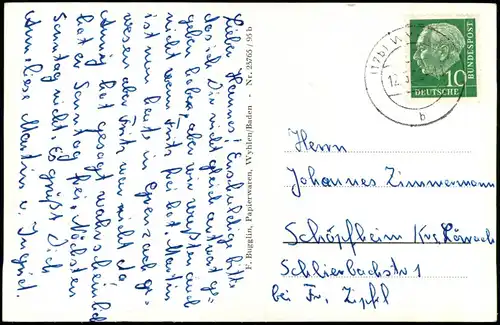 Lieber Hannes! Entschuldige bitte
das ich Dir nicht gleich antwort ge-
geben habe, aber wir wußten auch
nicht wann Fritz frei hat. Martin
ist nun heute in Grenzach ge-
wesen aber Fritz war nicht da
Anny hat gesagt wahrscheinlich
hat er Sonntag frei. Nächsten
Sonntag nicht. Es grüßt Dich
Anneliese Martin u. Ingrid.
F. Bugglin, Papierwaren, Wyhlen/Baden - Nr. 23765 / 95 b
(17b) WYH
12.
b
DEUTSCHE
BUNDESPOST
10
Herrn
Johannes Zimmermann
Schopfheim Krs. Lörrach
Schlierbachstr 1
bei Fr. Zipfl